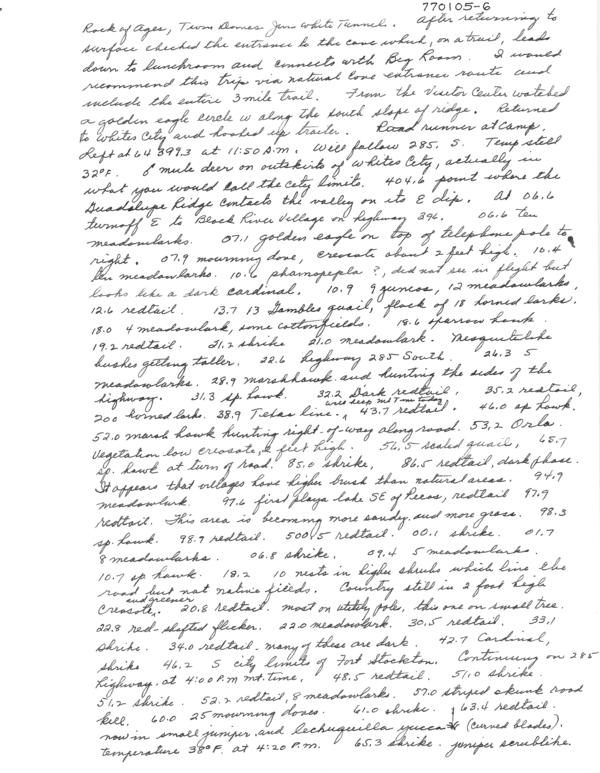 770105-6
Rock of Ages, Twin Domes Jim White Tunnel. After returning to
surface checked the entrance to the cave which, on a trail, leads
down to lunchroom and connects with Big Room. I would
recommend this trip via natural cave entrance route and
include the entire 3 mile trail. From the Visitor Center watched
a golden eagle circle w along the south slope of ridge. Returned
to Whites City and hooked up trailer. Road runner at camp.
Left at 64 3993 at 11:50 A.M. Will follow 285, S. Temp still
32°F. 6 mule deer on outskirts of Whites City, actually in
what you would call the city limits. 404.6 point where the
Guadalupe Ridge contacts the valley on its E dip. At 06.6
turnoff E to Black River Village on highway 396. 06.6 ten
meadowlarks. 07.1 golden eagle on top of telephone pole to
right. 07.9 mourning dove, creosote about 2 feet high. 10.4
ten meadowlarks. 10.6 phainopepla ?, did not see in flight but
looks like a dark cardinal. 10.9 9 juncos, 12 meadowlarks,
12.6 redtail. 13.7 13 Gambles quail, flock of 18 horned larks.
18.0 4 meadowlark, some cottonfields. 18.6 sparrow hawk
19.2 redtail. 21.2 shrike 21.0 meadowlark. Mesquite like
bushes getting taller. 22.6 highway 285 South. 26.3 5
meadowlarks. 28.9 marsh hawk and hunting the sides of the
highway. 31.3 sp hawk. 32.2 Dark redtail, 35.2 redtail,
200 horned larks. 38.9 Texas line. 43.7 redtail. 46.0 sp hawk.
52.0 marsh hawk hunting right-of-way along road. 53.2 Orla.
Vegetation low creosote, 2 feet high. 56.5 scaled quail, 65.7
sp. hawk at turn of road. 85.0 shrike, 86.5 redtail, dark phase.
It appears that villages have higher brush than natural areas. 94.9
meadowlark. 97.6 first playa lake SE of Pecos, redtail 97.9
redtail. This area is becoming more sandy and more grass. 98.3
sp. hawk. 98.9 redtail. 500.5 redtail. 00.1 shrike. 01.7
8 meadowlarks. 06.8 shrike. 09.4 5 meadowlarks.
10.7 sp hawk. 18.2 10 nests in higher shrubs which line the
road but not native fields. Country still in 2 foot high
and greener
creosote. 20.8 redtail. most on utility pole, this one on small tree.
22.8 red-shafted flicker. 22.0 meadowlark. 30.5 redtail. 33.1
shrike. 34.0 redtail - many of these are dark. 42.7 Cardinal,
shrike 46.2 S city limits of Fort Stockton. Continuing on 285
highway at 4:00 P.M mt. time. 48.5 redtail. 51.0 shrike.
51.2 shrike. 52.2 redtail, 8 meadowlarks. 57.0 striped skunk road
kill. 60.0 25 mourning doves. 61.0 shrike. 63.4 redtail.
now in small juniper and lechuguilla yucca (curved blades).
temperature 38°F. at 4:20 P.M. 65.3 shrike. juniper scrublike.